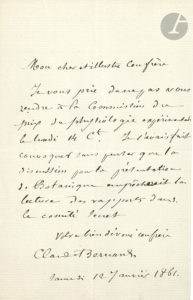 Mon cher et illustre confrère
Je vous prie de ne pas vous
rendre à la Commission du
prix de physiologie expérimentale
le lundi 14 Ct. Je l'avais fait
convoquer sans penser que la
discussion pour la présentation
de Botanique empêcherait la
lecture des rapports dans
le comité secret
Votre bien dévoué confrère
Claude Bernard
Samedi 12 Janvier 1861.